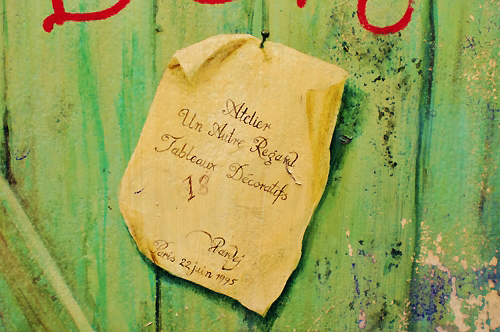 Atelier
Un Autre Regard
Tableaux Décoratifs
18
Paris 22 juin 1995